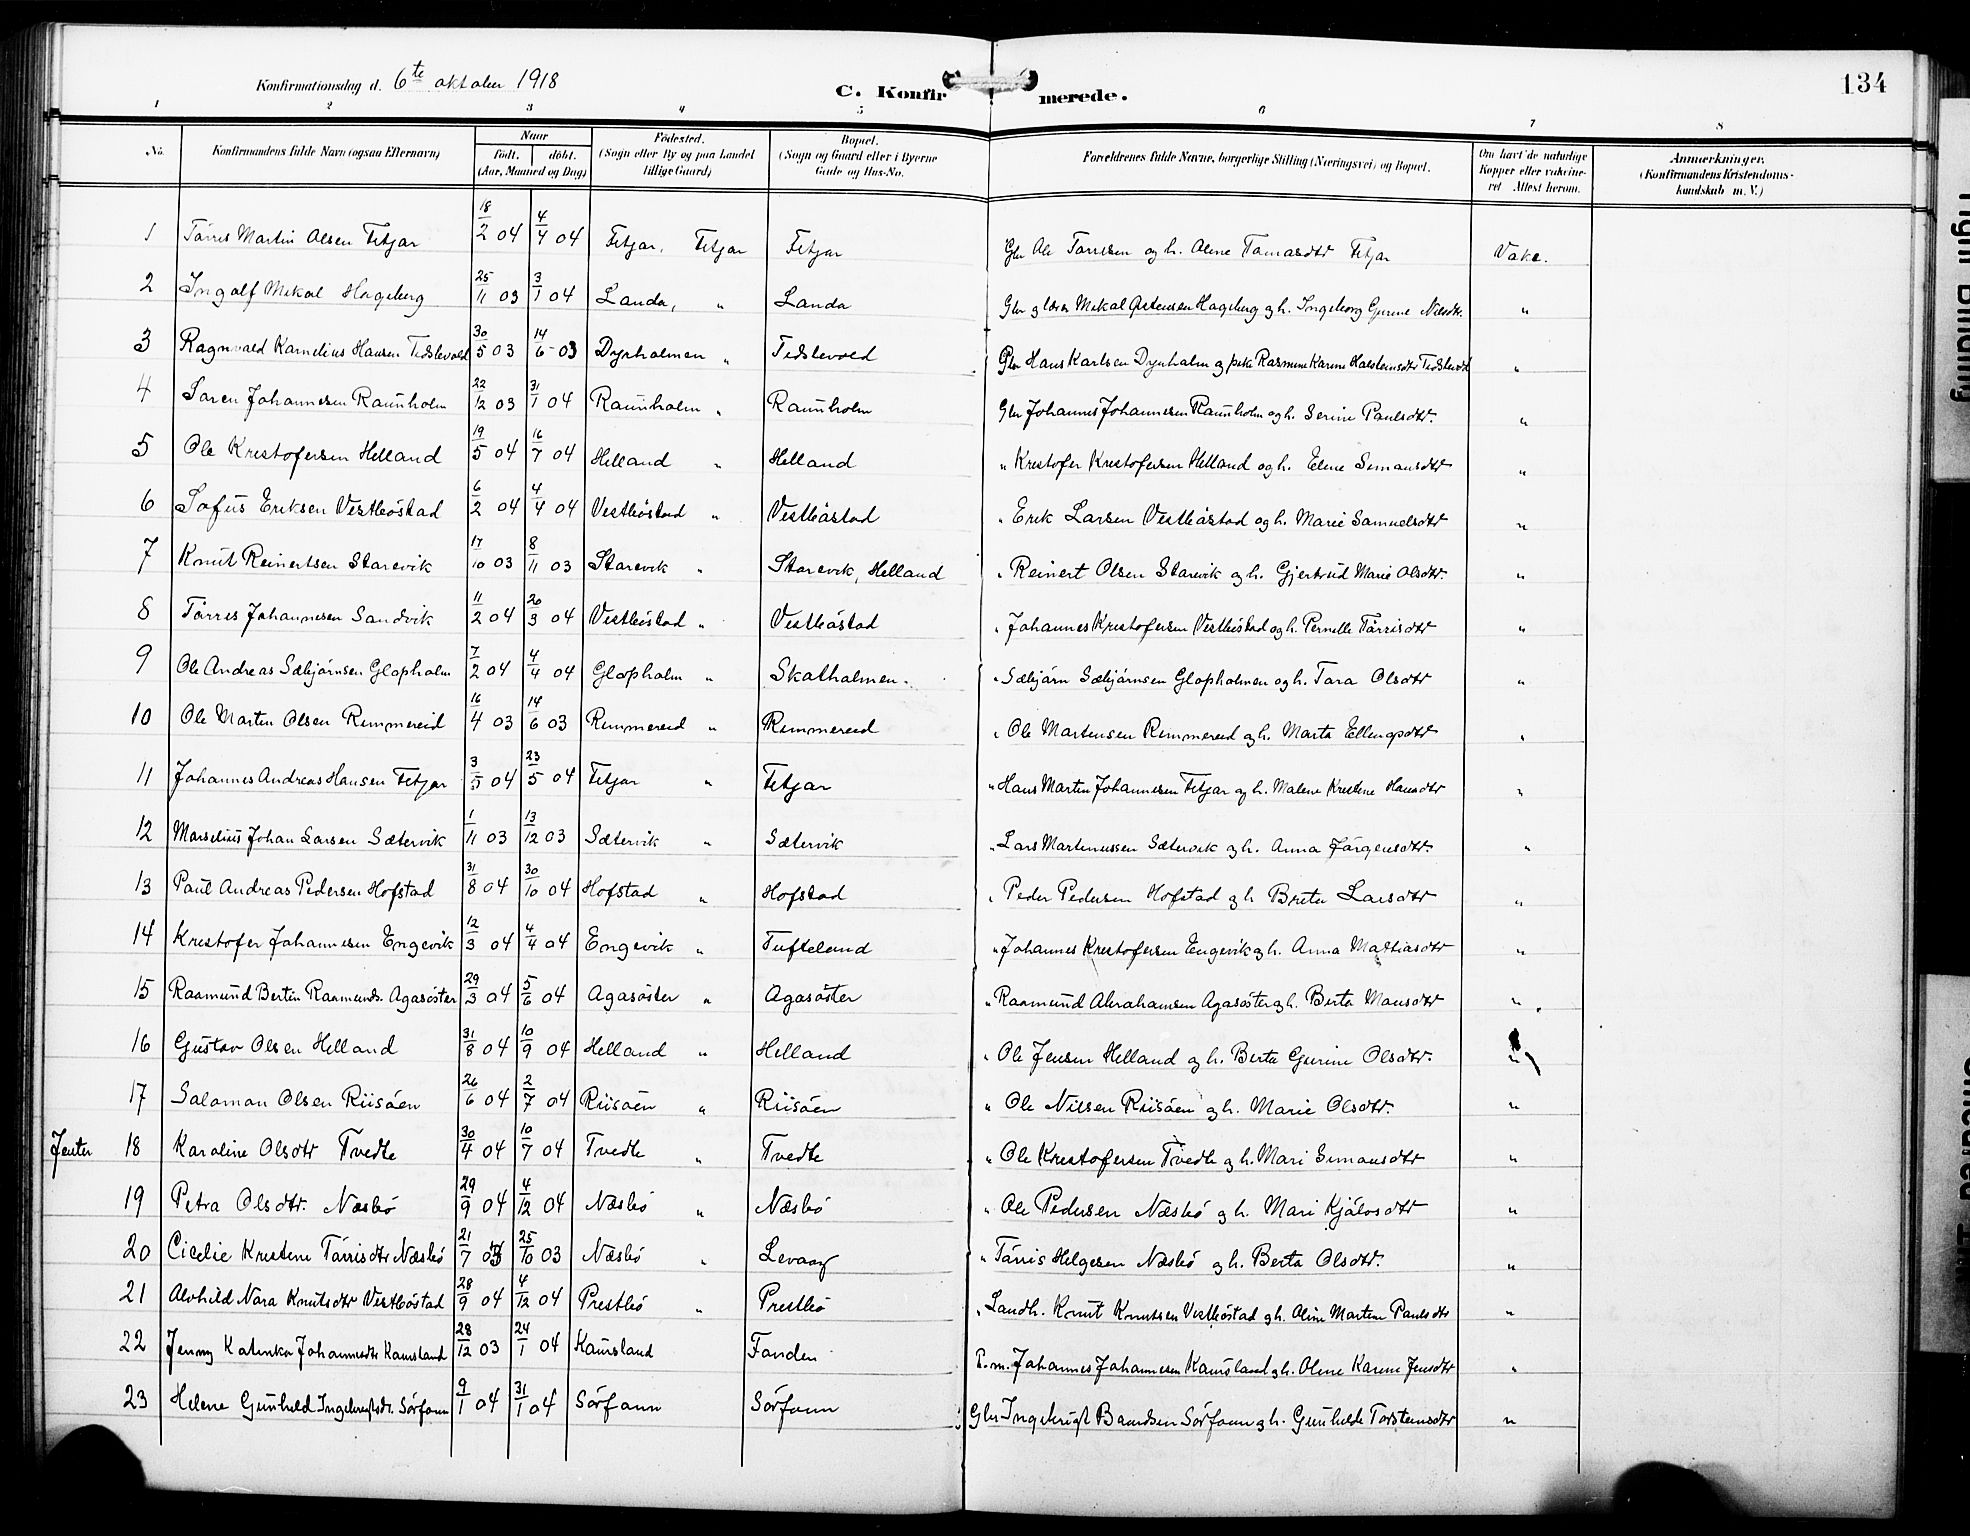 Konfirmationsdag d. 6te oktober 1918 C. Konfirmerede. 134
1 2 3 4 5 6 7 8
No. Konfirmandens fulde Navn (ogsaa Efternavn) Naar født. døbt. (Aar, Maaned og Dag) Fødested. (Sogn eller By og paa Landet tillige Gaard) Bopæl. (Sogn og Gaard eller i Byerne Gade og Hus-No. Forældrenes fulde Navne, borgerlige Stilling (Næringsvei) og Bopæl. Om havt de naturlige Kopper eller vakcineret Attest herom. Anmærkninger. (Konfirmandens Kristendomskundskab m. V.)
1 Tørres Martin Olsen Fitjar 18/2 04 4/4 04 Fitjar, Fitjar Fitjar Gbr Ole Torresen og h. Oline Tomasdtr Fitjar Vakc.
2 Ingolf Mikal Hageberg 25/11 03 3/1 04 Landa, " Landa Gbr g lærer Mikal Hageberg og h. Ingeborg Gurine Nilsdtr. "
3 Ragnvald Kornelius Hansen Tidslevold 30/5 03 14/6 03 Dyrholmen " Tidslevold Gbr Hans Karlsen Dyrholm og pike Rasmine Karine Halsteinsdtr Tidslevold "
4 Søren Johannesen Raunholm 22/12 03 31/1 04 Raunholm " Raunholm Gbr Johannes Johannesen Raunholm og h. Serine Paulsdtr. "
5 Ole Kristofersen Helland 19/5 04 16/7 04 Helland " Helland " Kristofer Kristofersen Helland og h. Eline Simonsdtr "
6 Sofus Eriksen Vestbøstad 6/2 04 4/4 04 Vestbøstad " Vestbøstad " Erik Larsen Vestbøstad og h. Marie Samuelsdtr "
7 Knut Reinertsen Storevik 17/10 03 8/11 03 Storevik " Storevik, Helland " Reinert Olsen Storevik og h. Gjertrud Marie Olsdtr. "
8 Tørres Johannesen Sandvik 11/2 04 20/3 04 Vestbøstad " Vestbøstad " Johannes Kristofersen Vestbøstad og h. Pernille Tørrisdtr "
9 Ole Andreas Sæbjørnsen Glopholm 7/2 04 4/4 04 Glopholm " Skatholmen. " Sæbjørn Sæbjørnsen Glopholmen og h. Tora Olsdtr "
10 Ole Martin Olsen Rimmereid 16/4 03 14/6 03 Rimmereid " Rimmereid " Ole Martinsen Rimmereid og h. Marta Ellingsdtr "
11 Johannes Andreas Hansen Fitjar 3/5 04 23/5 04 Fitjar " Fitjar " Hans Martin Johannesen Fitjar og h. Malene Kristine Hansdtr "
12 Marselius Johan Larsen Sætervik 1/11 03 13/12 03 Sætervik " Sætervik " Lars Martinussen Sætervik og h. Anna Jørgensdtr. "
13 Paul Andreas Pedersen Hofstad 31/8 04 30/10 04 Hofstad " Hofstad " Peder Pedersen Hofstad og h Brita Larsdtr "
14 Kristofer Johannesen Engevik 12/3 04 4/4 04 Engevik " Tufteland " Johannes Kristofersen Engevik og h. Anna Mattiasdtr "
15 Rasmund Bertin Rasmunds. Agasøster 29/3 04 5/6 04 Agasøster " Agasøster " Rasmund Abrahamsen Agasøster og h. Berta Monsdtr "
16 Gustav Olsen Helland 31/8 04 10/9 04 Helland " Helland " Ole Jensen Helland og h. Berta Gurine Olsdtr. "
17 Salomon Olsen Riisøen 26/6 04 2/7 04 Riisøen " Riisøen " Ole Nilsen Riisøen og h. Marie Olsdtr. "
Jenter 18 Karoline Olsdtr Tvedte 30/4 04 10/7 04 Tvedte " Tvedte " Ole Kristofersen Tvedte og h. Mari Simonsdtr "
19 Petra Olsdtr. Næsbø 29/9 04 4/12 04 Næsbø " Næsbø " Ole Pedersen Næsbø og h. Mari Kjølvsdtr "
20 Cicelie Kristine Tørrisdtr Næsbø 21/7 03 25/10 03 Næsbø " Levaag " Tørris Helgesen Næsbø og h. Berta Olsdtr. "
21 Alvhild Nora Knutsdtr Vestbøstad 28/9 04 4/12 04 Prestbø " Prestbø " Landh. Knut Knutsen Vestbøstad og h. Oline Martine Paulsdtr "
22 Jenny Katinka Johannesdtr Kaursland 28/12 03 24/1 04 Kaursland Fonden P.m. Johannes Johannesen Kaursland og h. Oline Karine Jensdtr "
23 Helene Gunhild Ingebrigtsdtr. Sørfonn 9/1 04 31/1 04 Sørfonn Sørfonn Gbr Ingebrigt Baardsen Sørfonn og h. Gunhilde Torsteinsdtr "